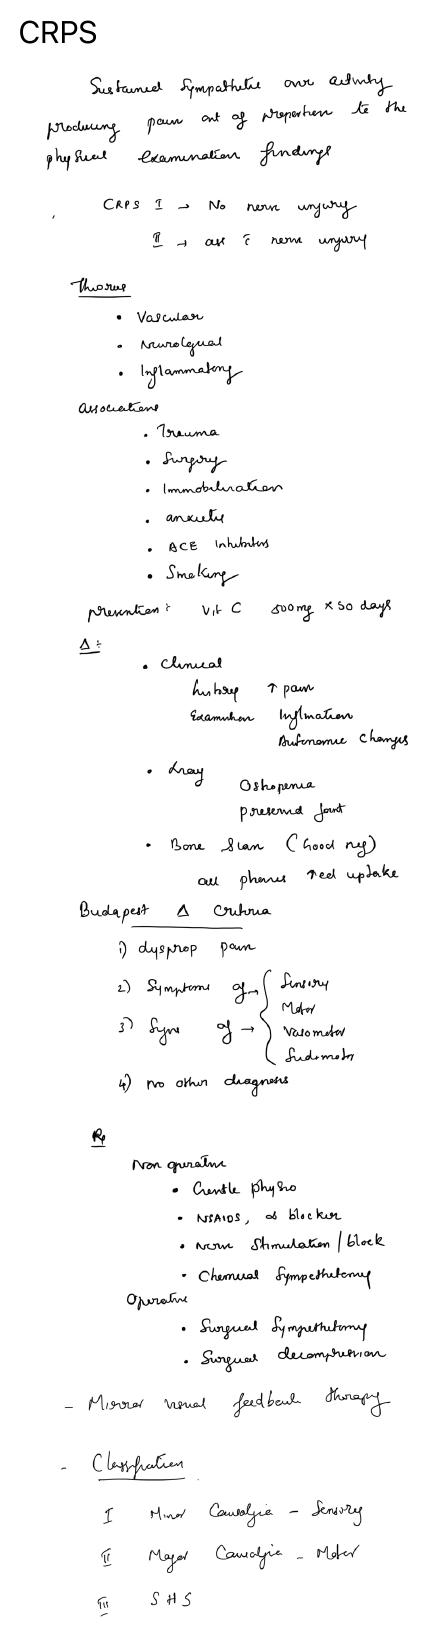 CRPS
Sustained sympathetic over activity
producing pain out of proportion to the
physical examination findings
CRPS I → No nerve injury
II → ass c̄ nerve injury
Theories
• Vascular
• Neurological
• Inflammatory
associations
• Trauma
• Surgery
• Immobilisation
• anxiety
• ACE Inhibitors
• Smoking
prevention : Vit C 500mg × 50 days
Δ :
• Clinical
history ↑ pain
Examination Inflmation
Autonomic Changes
• Xray
Osteopenia
preserved joint
• Bone Scan (Good neg)
all phases ↑ed uptake
Budapest Δ Criteria
1) dysprop pain
2) Symptoms of → Sensory
Motor
3) Signs of → Vasomotor
Sudomotor
4) no other diagnosis
Rx
Non operative
• Gentle physio
• NSAIDS, α blocker
• Nerve Stimulation / block
• Chemical Sympathetomy
Operative
• Surgical Sympathetomy
• Surgical decompression
- Mirror visual feedback therapy
- Classification
I Minor Causalgia - Sensory
II Major Causalgia - Motor
III SHS